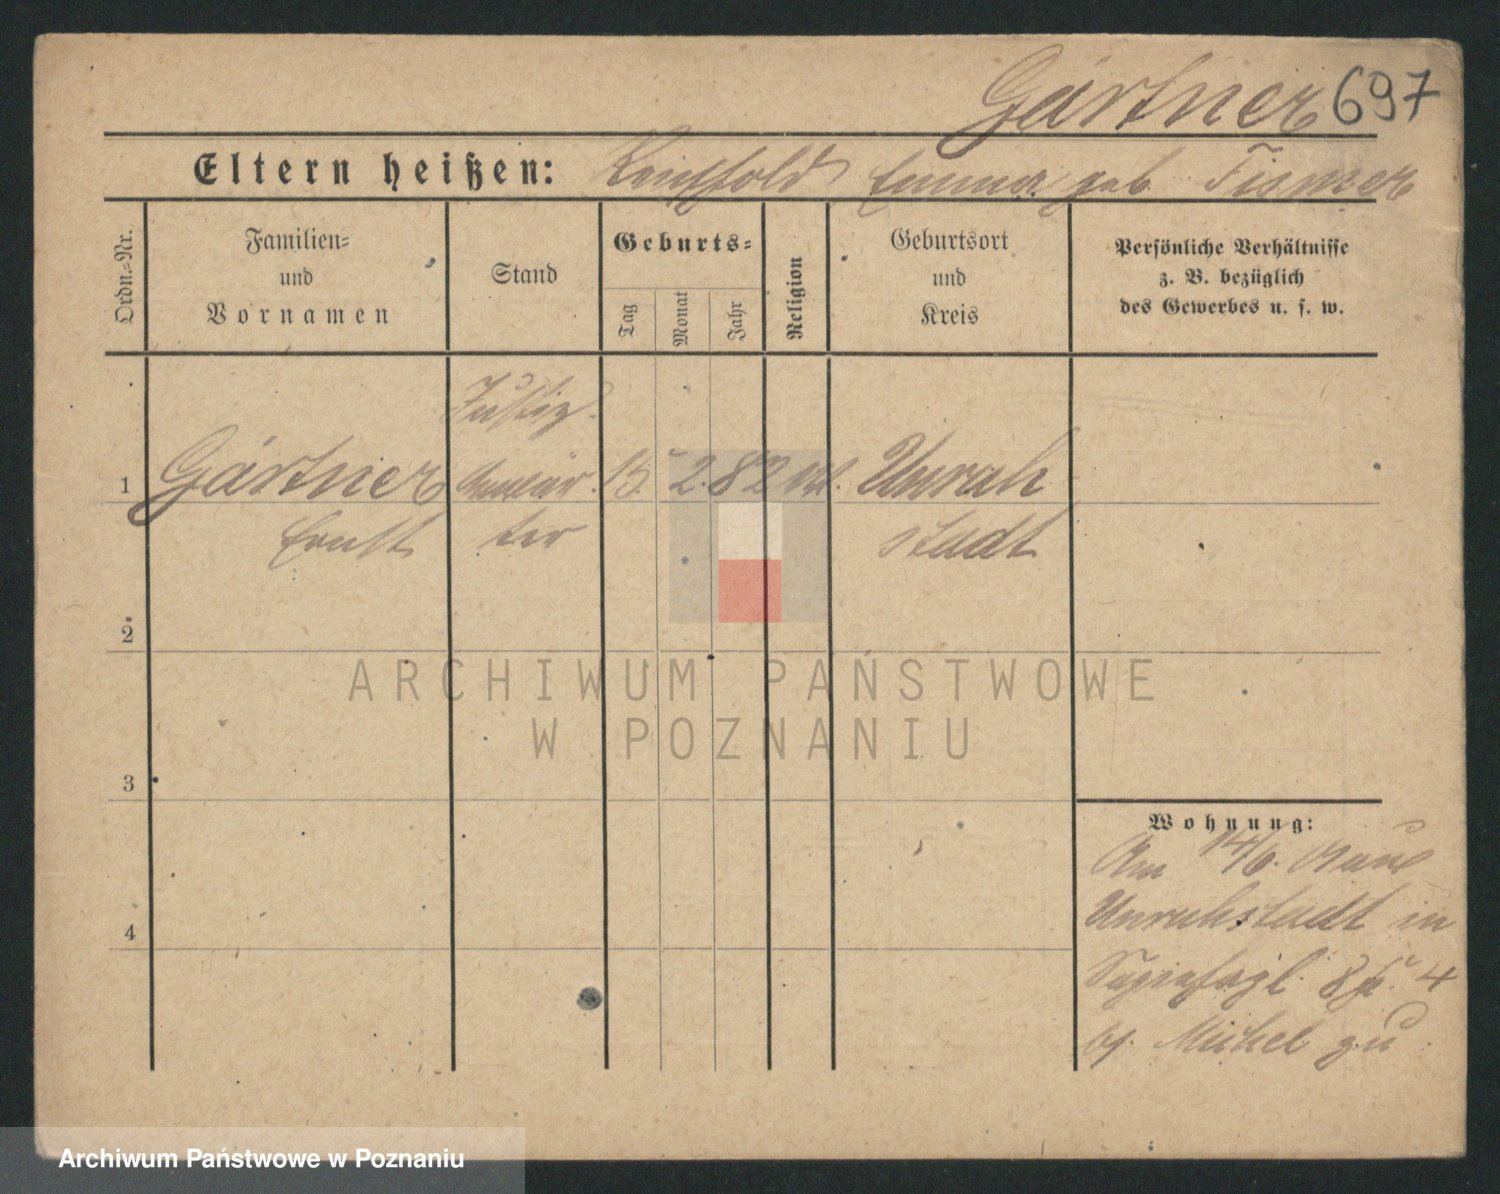 Gärtner 697
Eltern heißen: Reinhold Emma geb. Fismer
Ordn.=Nr.
Familien=
und
Vornamen
Stand
Geburts=
Tag
Monat
Jahr
Religion
Geburtsort
und
Kreis
Persönliche Verhältnisse
z. B. bezüglich
des Gewerbes u. s. w.
Justiz
1 Gärtner 15 2. 82 Unruh
Ernst ter stadt
2
3
4
Wohnung:
Am 14/6. 01 aus
Unruhstadt in
8 4
bei Michel zu
ARCHIWUM PAŃSTWOWE
W POZNANIU
Archiwum Państwowe w Poznaniu